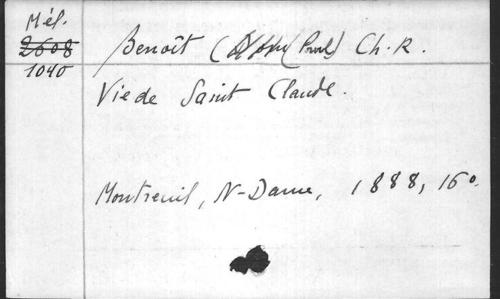 Mél.
2608
1040
Benoît (Paul) Ch. R.
Vie de Saint Claude.
Montreuil, N-Dame, 1888, 16°.